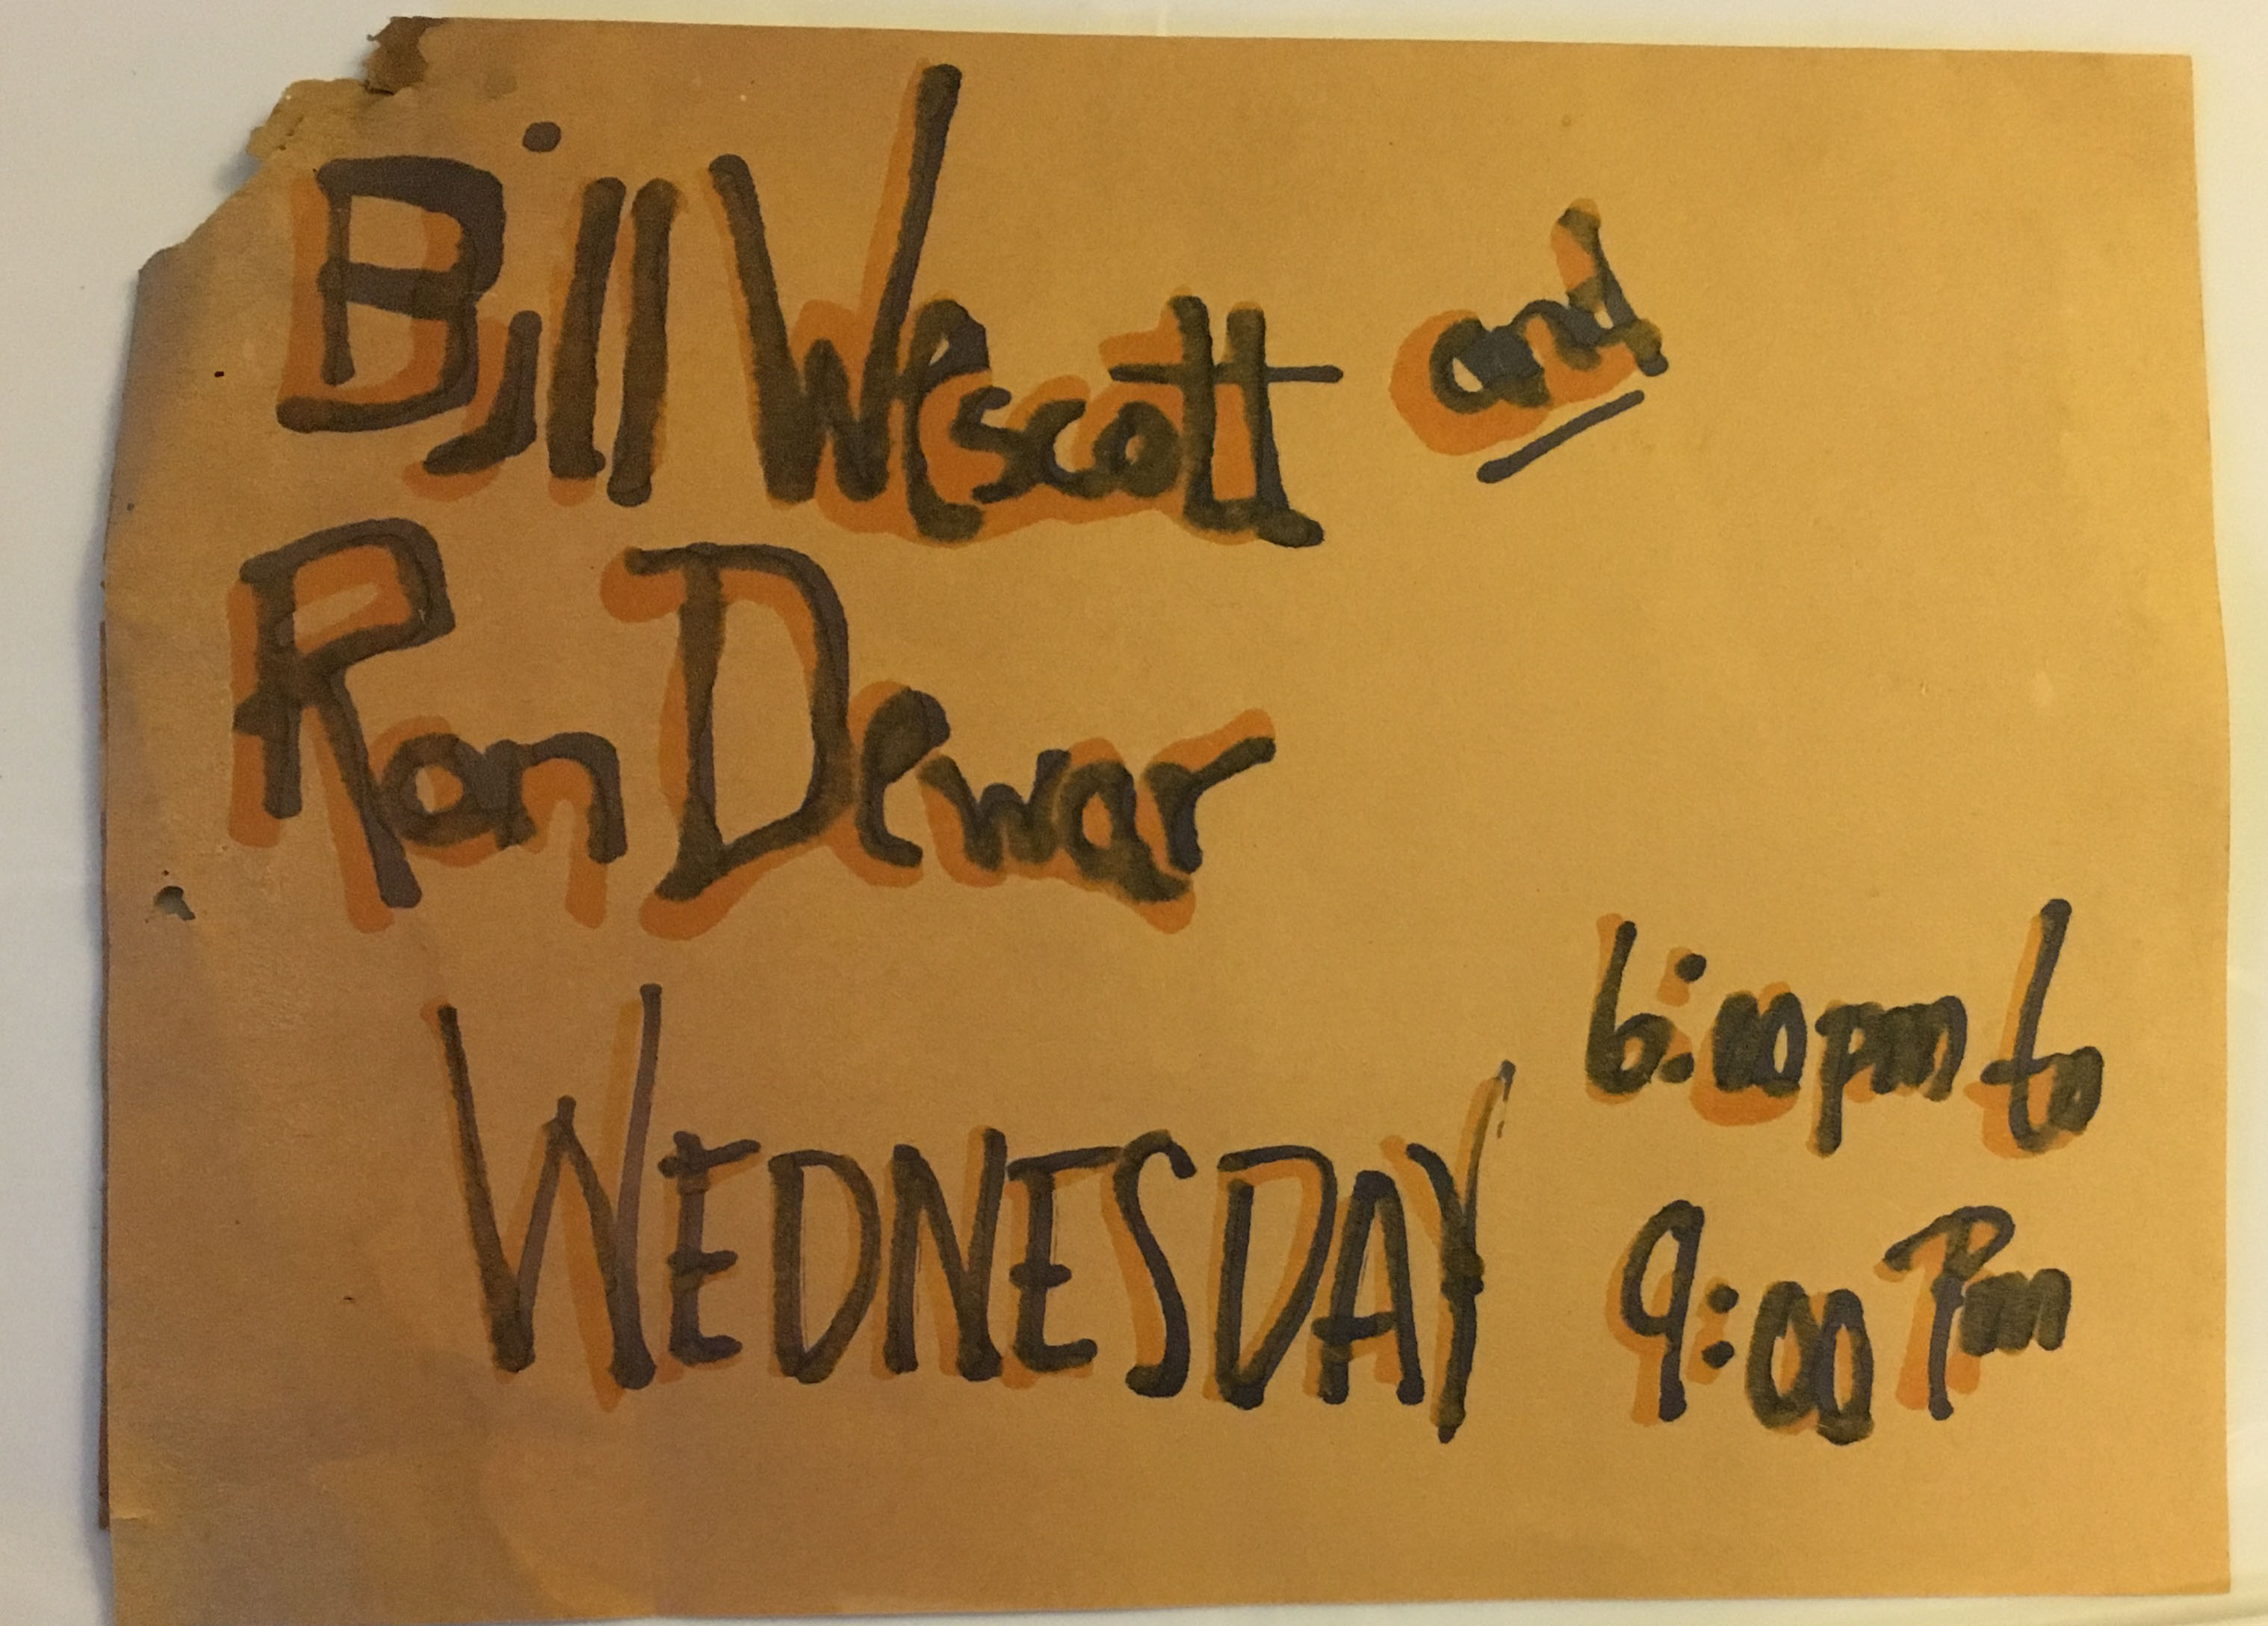 Bill Wescott and
Ron Dewar
WEDNESDAY
6:00pm to
9:00 Pm